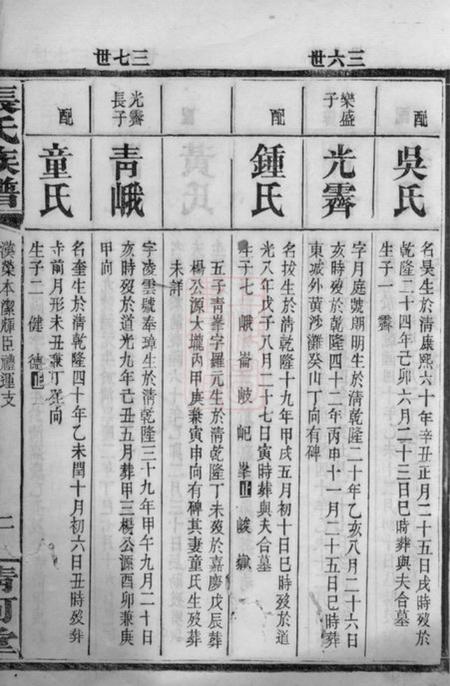 三六世
配
吳氏
名昊生於清康熙六十年辛丑正月二十五日戌時歿於
乾隆二十四年己卯六月二十三日巳時葬與夫合墓
生子一 霽
樂盛
子
光霽
字月庭號朗明生於清乾隆二十年乙亥八月二十六日
亥時歿於乾隆四十二年丙申十一月二十五日巳時葬
東城外黄沙灘癸山丁向有碑
配
鍾氏
名拔生於清乾隆十九年甲戌五月初十日巳時歿於道
光八年戊子八月二十七日寅時葬與夫合墓
生子七 峨 崙 岐 𡵆 峯止 峻 嶽
五子青峯字羅元生於清乾隆丁未歿於嘉慶戊辰葬
楊公源大壠丙甲庚兼寅申向有碑其妻童氏生歿葬
未詳
三七世
光霽
長子
青峨
字凌雲號奉璋生於清乾隆三十九年甲午九月二十日
亥時歿於道光九年己丑五月葬甲三楊公源酉卯兼庚
甲向
配
童氏
名奎生於清乾隆四十年乙未閏十月初六日丑時歿葬
寺前月形未丑兼丁癸向
生子二 健 德止
張氏族譜
漢榮本潔輝臣禮運支
二
清河堂